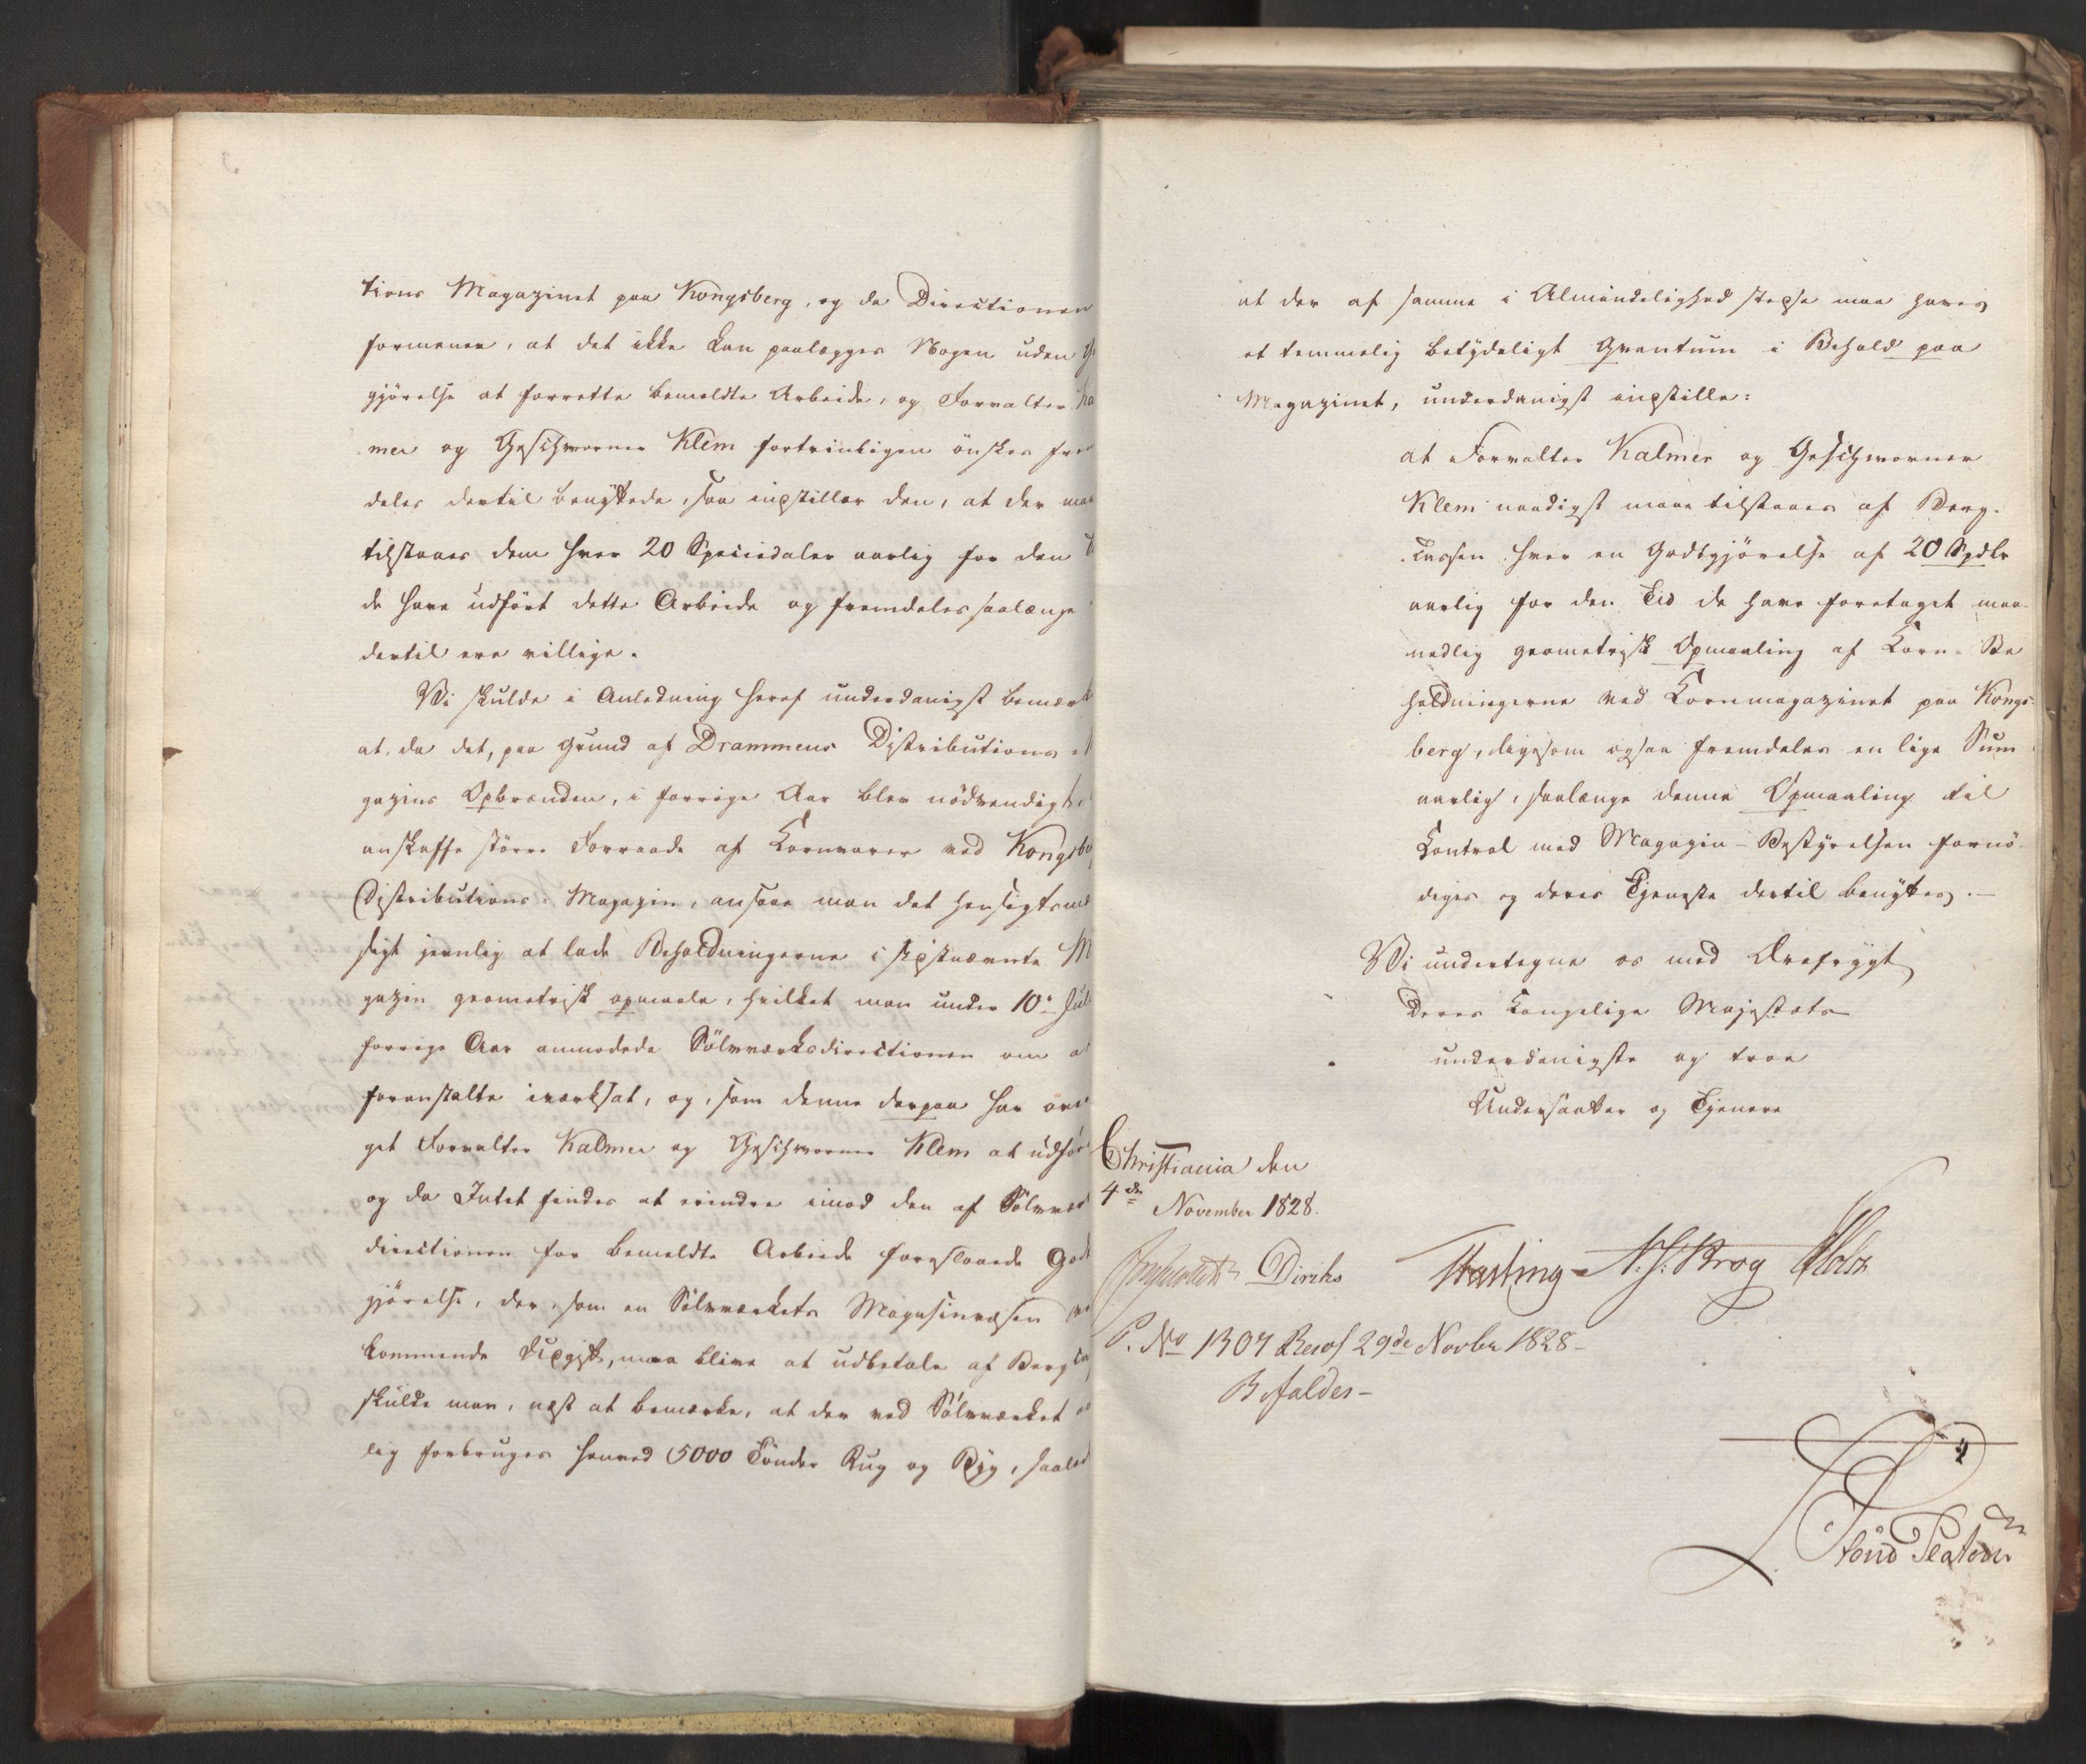 tions Magazinet paa Kongsberg, og da Directionen
formener, at det ikke kan paalægges Nogen uden
gjörelse at forrette bemeldte Arbeide, og Forvalter Ka
mer og Geschworner Klem fortrinligen önskes frem
deles dertil benyttede, saa indstiller den, at der maa
tilstaaes dem hver 20 Speciedaler aarlig for den
de have udfört dette Arbeide og fremdeles saalænge
dertil ere villige.
Vi skulde i Anledning heraf underdanigst bemærk
at, da det, paa Grund af Drammens Distributions
gazins Opbrænden, i forrige Aar blev nödvendigt
anskaffe större Forraade af Kornvarer ved Kongsbe
Distributions-Magazin, ansaae man det hensigtsmæ
sigt jevnlig at lade Beholdningerne i sidstnævnte M
gazin geometrisk opmaale, hvilket man under 10de Juli
forrige Aar anmodede Sölvværksdirectionen om at
foranstalte iværksat, og, som denne derpaa har over
get Forvalter Kalmer og Geschworner Klem at udföre
og da Intet findes at erindre imod den af Sölvvær
directionen for bemeldte Arbeide foreslaaede Godt
gjörelse, der, som en Sölvværkets Magasinvæsen ved
kommende Udgift, maa blive at udbetale af Berg
skulde man, næst at bemærke, at der ved Sölvværket
lig forbruges henved 5000 Tönder Rug og Byg, saaled
at der af samme i Almindelighed stedse maa haves
et temmelig betydeligt Qvantum i Behold paa
Magazinet, underdanigst indstille:
at Forvalter Kalmer og Geschworner
Klem naadigst maae tilstaaes af Berg-
cassen hver en Godtgjörelse af 20 Spdlr
aarlig for den Tid de have foretaget maa-
nedlig geometrisk Opmaaling af Korn-Be
holdningerne ved Kornmagazinet paa Kongs-
berg, ligesom ogsaa fremdeles en lige Sum
aarlig, saalænge denne Opmaaling til
Control med Magazin-Bestyrelsen fornö-
diges og deres Tjeneste dertil benyttes.-
Vi undertegne os med Ærefrygt
Deres Kongelige Majestæts
underdanigste og troe
Undersaatter og Tjenere
Christiania den
4de November 1828.
Diriks Fasting N. J. Krog Holst
P. No 1307 Resol 29de Novbr 1828-
Bifaldes-